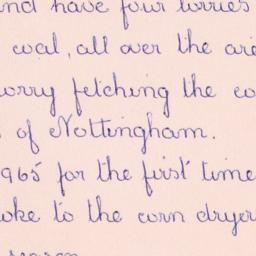 and have four lorries
coal, all over the are
lorry fetching the co
of Nottingham.
1965 for the first time
oke to the corn dryer